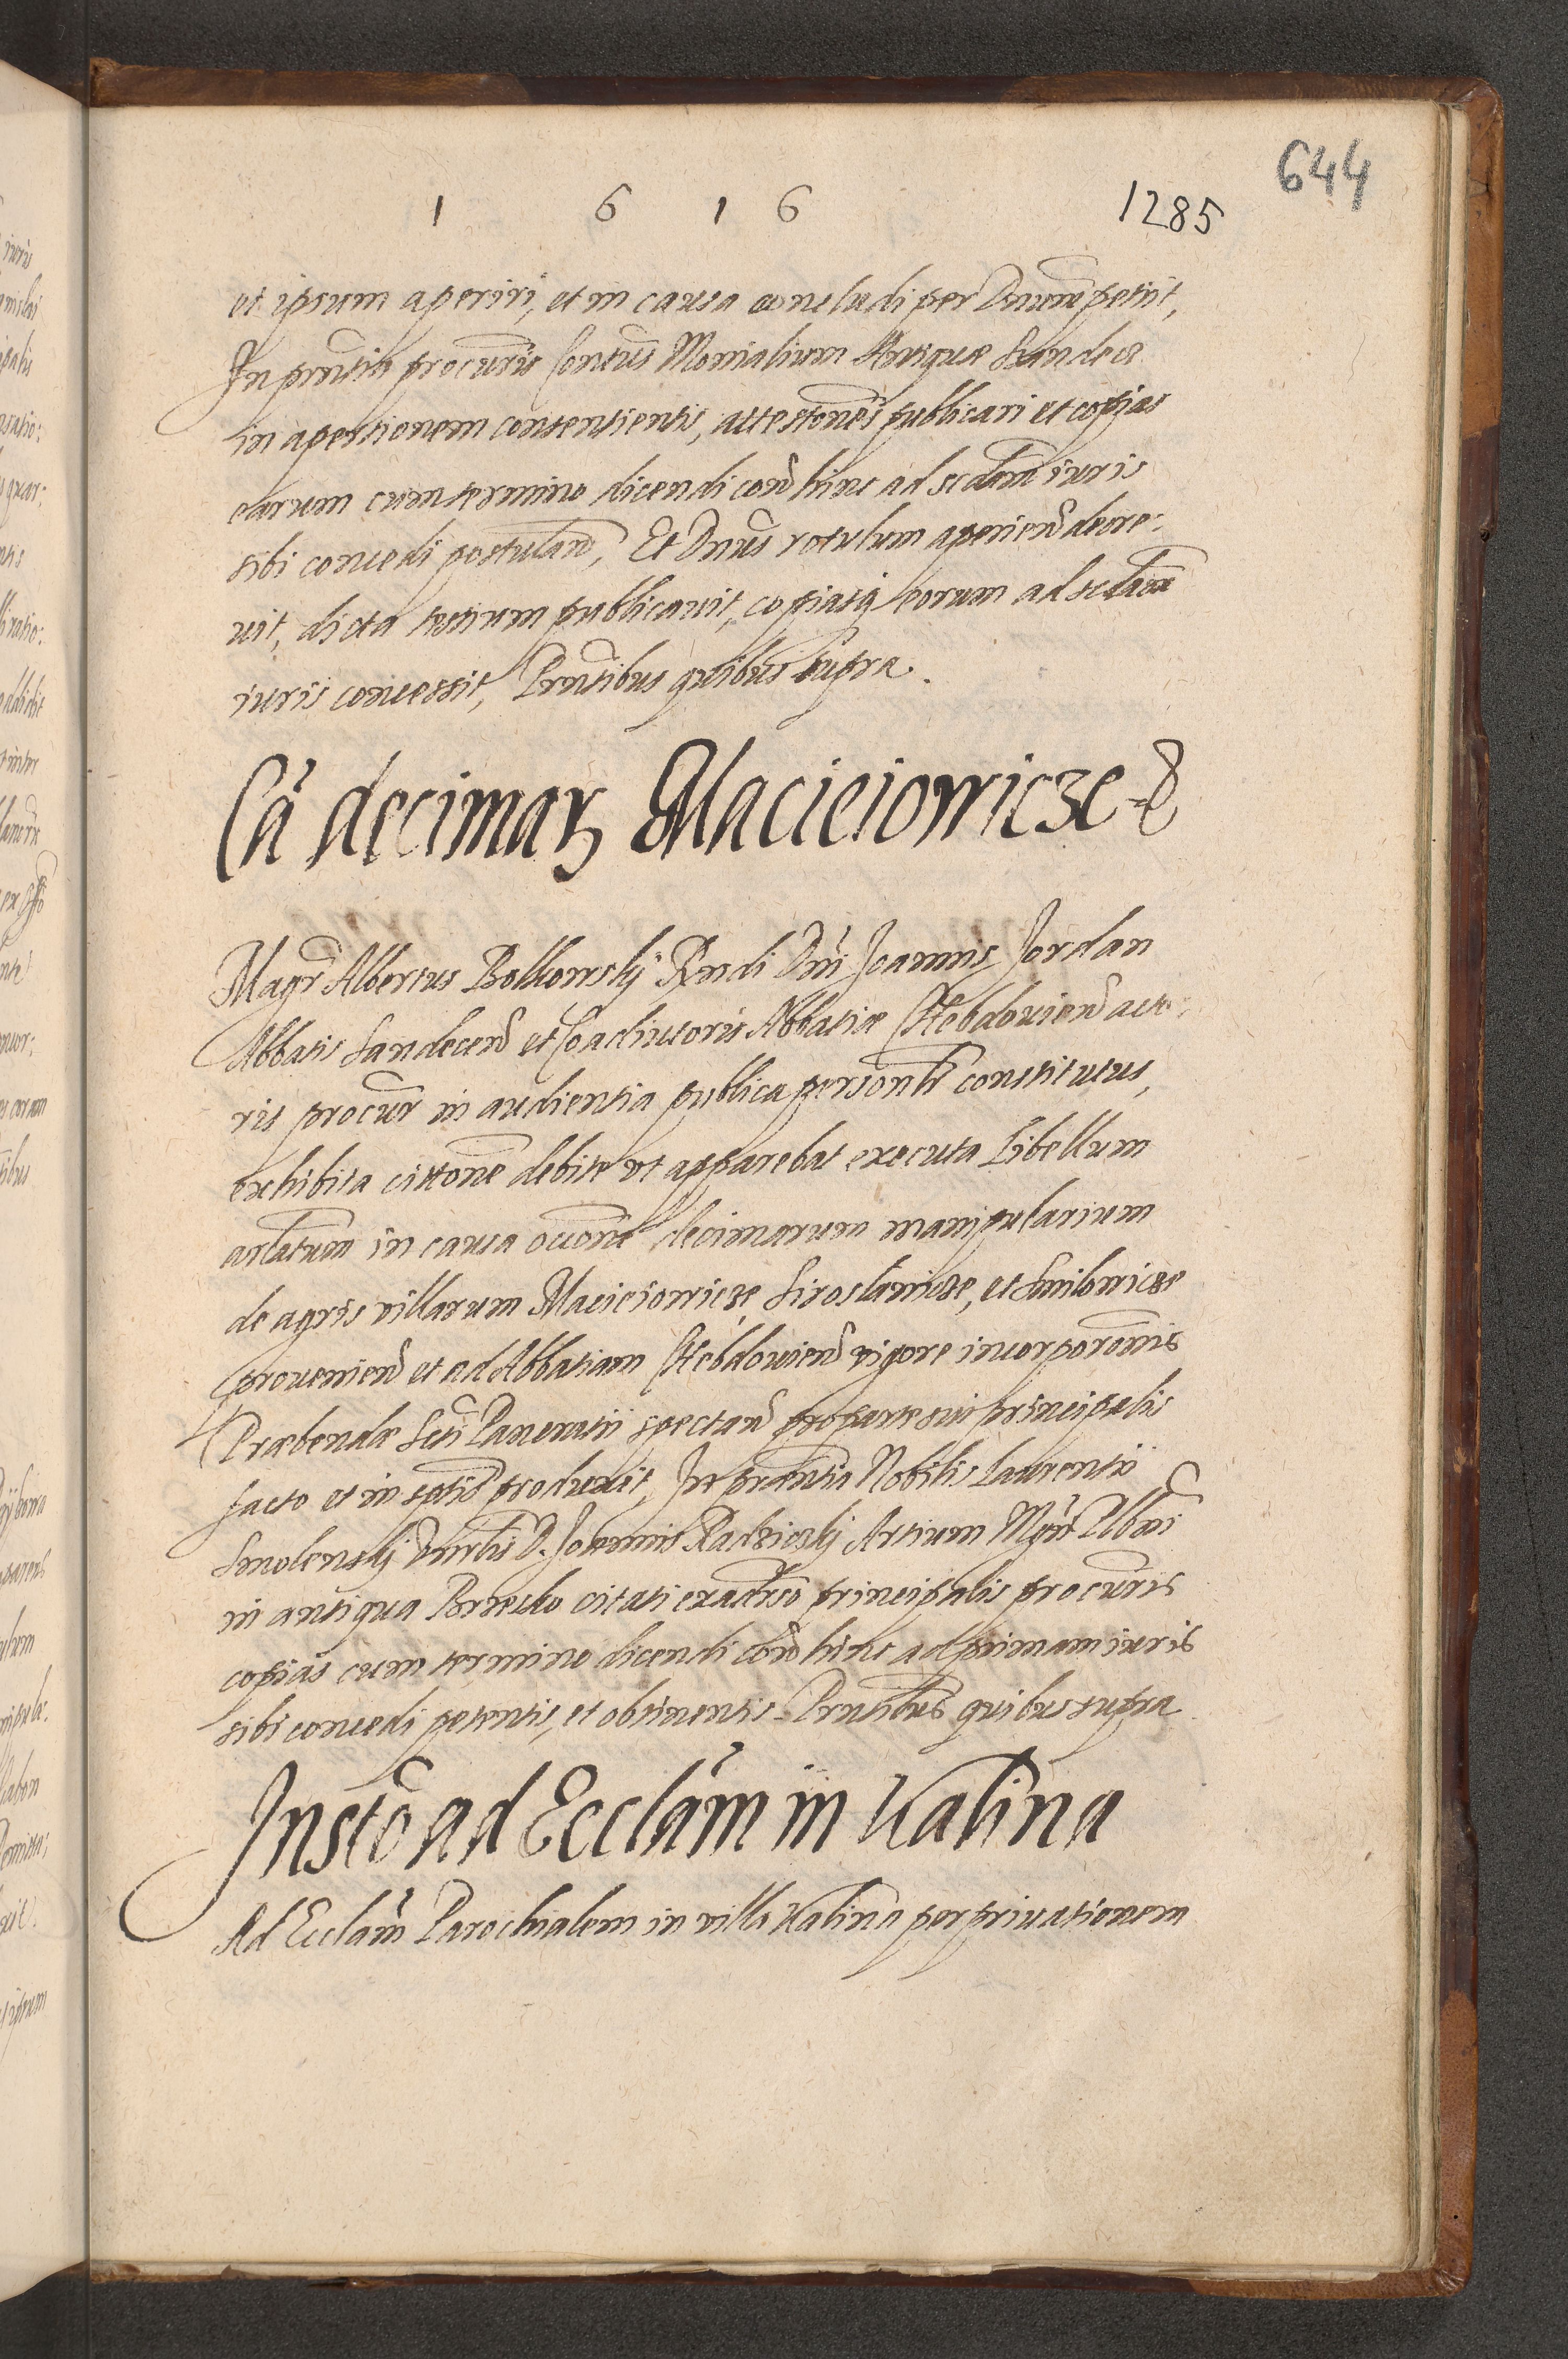 644
1 6 1 6 1285
et ipsum aperiri, et in causa concludi per Dnum petiit,
In pñtiis procuris Contus Monialium Antiquæ Sandecz
in apertionem consentientis, attestones publicari et copias
earum cum termino dicendi con hinc ad scdam iuris
sibi concedi postulan, Et Dnus rotulum aperiend decre:
uit, dicta testium publicauit, copiasq eorum ad scdam
iuris concessit, Pñtibus quibus supra.
Ca decimar Macieiowicze
Magr Albertus Bolkowsky Rndi Dni Joannis Jordan
Abbatis Sandecen et Coadiutoris Abbatiæ Hebdouien acto:
ris procur in audientia publica personlr constitutus,
exhibita cittone debite vt apparebat executa Libellum
arlatum in causa occone decimarum manipularium
de agris villarum Macieiowicze, Siroslawicze, et Smilowicze
prouenien et ad Abbatiam Hebdouien vigore incorporonis
Præbendæ Scti Pancratii spectan pro parte sui principalis
facto et in sptis produxit, In pñtia Nobilis Laurentii
Smolensky Vnrlis D. Joannis Radzicsky Artium Mgri Plbani
in antiqua Brzesko citati ex aduerso principalis procuris
copias cum termino dicendi con hinc ad primam iuris
sibi concedi petentis, et obtinentis. Pñtibus quibus supra
Insto ad Ecclam in Kalina
Ad Ecclam Parochialem in villa Kalina per priuationem